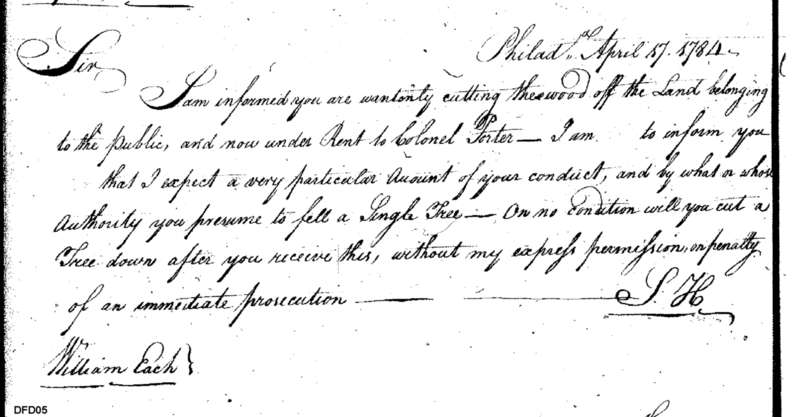 Philada. April 17. 1784
Sir
I am informed you are wantonly cutting the wood off the Land belonging
to the Public, and now under Rent to Colonel Porter — I am to inform you
that I expect a very particular Account of your conduct, and by what or whose
Authority you presume to fell a Single Tree — On no Condition will you cut a
Tree down after you receive this, without my express permission, on penalty
of an immediate prosecution —— —— S. H
William Each }
DFD05